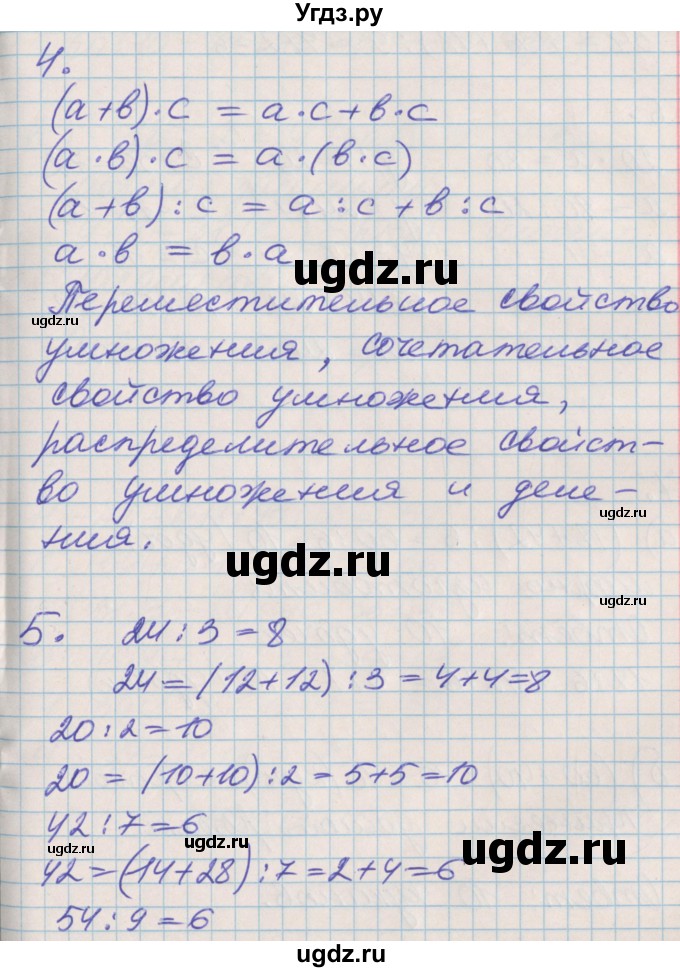 Угдз.ру
4.
(а+в)·с = а·с+в·с
(а·в)·с = а·(в·с)
(а+в):с = а:с+в:с
а·в = в·а
ugdz.ru
Переместительное свойство
ugdz.ru
умножения, сочетательное
свойство умножения,
ugdz.ru
распределительное свойст-
во умножения и деле-
ugdz.ru
ния.
ugdz.ru
5. 24:3=8
ugdz.ru
24=(12+12):3=4+4=8
20:2=10
20=(10+10):2=5+5=10
42:7=6
ugdz.ru
ugdz.ru
42=(14+28):7=2+4=6
54:9=6
ugdz.ru
ugdz.ru